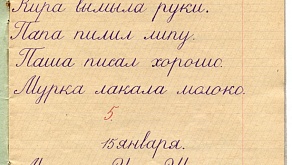 Кира вымыла руки.
Папа пилил липу.
Паша писал хорошо.
Мурка лакала молоко.
5
15 января.